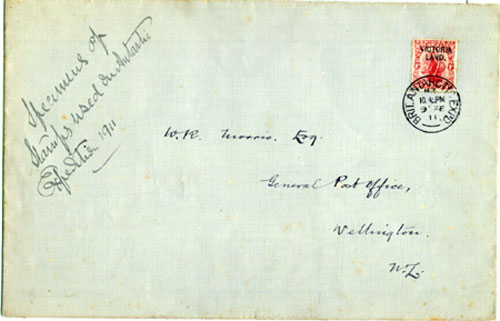 Specimens of
Stamps used on Antarctic
Expedition 1911
VICTORIA
LAND.
BRIT. ANTARCTIC EXPD.
9 FE
11
W. R. Morris. Esq.
General Post Office,
Wellington.
N.Z.